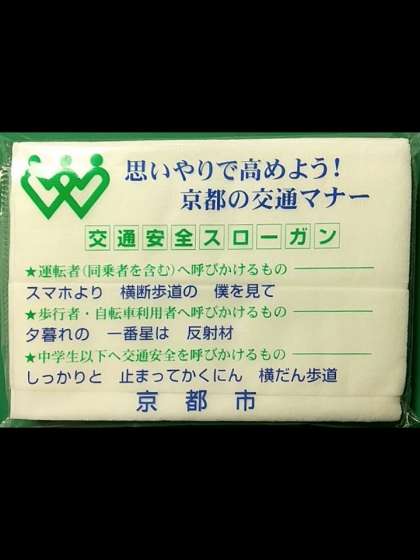 思いやりで高めよう!
京都の交通マナー
交通安全スローガン
★運転者(同乗者を含む)へ呼びかけるもの
スマホより 横断歩道の 僕を見て
★歩行者・自転車利用者へ呼びかけるもの
夕暮れの 一番星は 反射材
★中学生以下へ交通安全を呼びかけるもの
しっかりと 止まってかくにん 横だん歩道
京都市